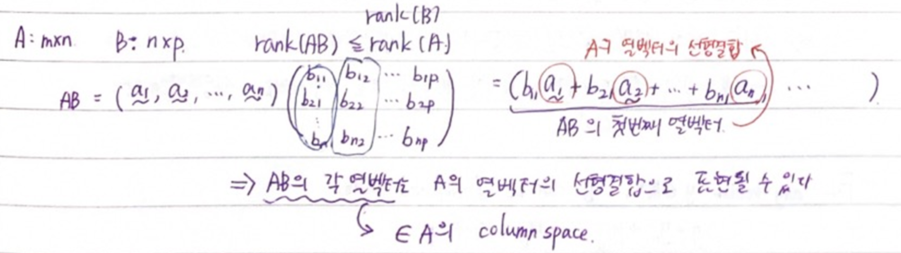 rank(B)
A: m×n. B: n×p. rank(AB) ≤ rank(A)
A의 열벡터의 선형결합
AB = (a1, a2, ..., an) (b11 b12 ... b1p
b21 b22 ... b2p
⋮
bn1 bn2 ... bnp) = (b11 a1 + b21 a2 + ... + bn1 an, ... )
AB의 첫번째 열벡터.
⇒ AB의 각 열벡터는 A의 열벡터의 선형결합으로 표현될 수 있다
∈ A의 column space.